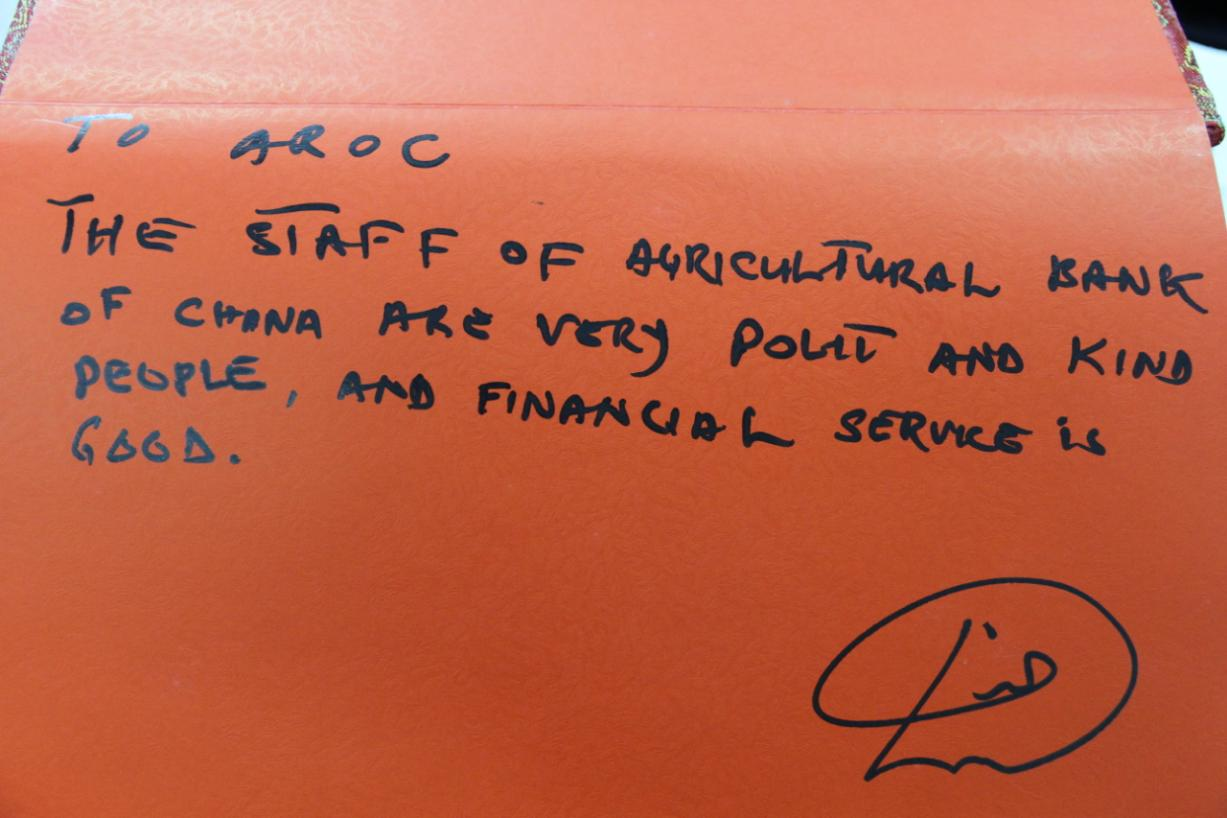 TO AROC
THE STAFF OF AGRICULTURAL BANK
OF CHINA ARE VERY POLIT AND KIND
PEOPLE, AND FINANCIAL SERVICE is
GOOD.